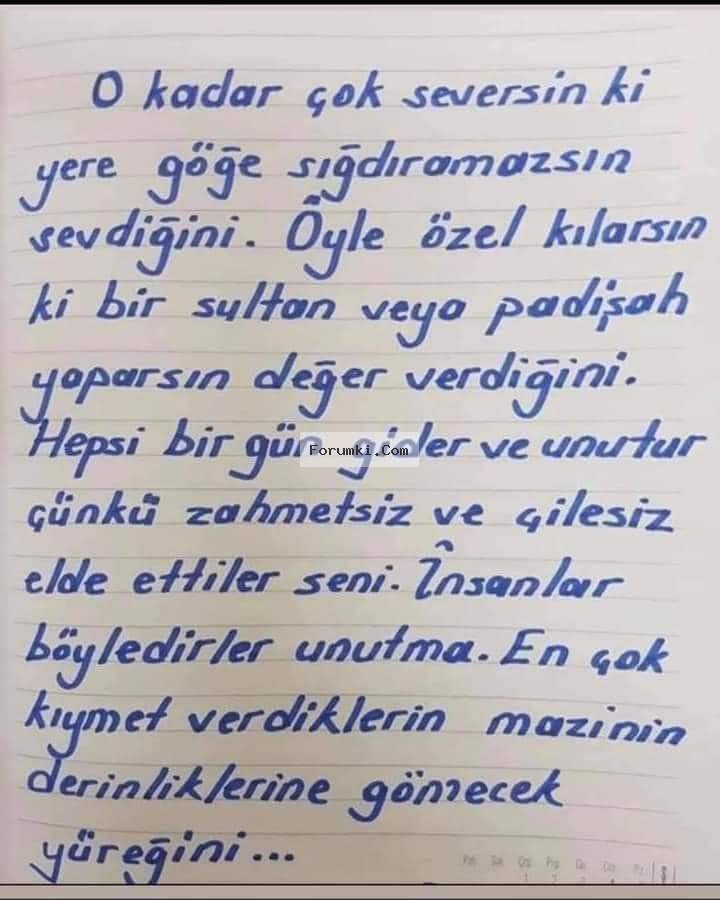 O kadar çok seversin ki
yere göğe sığdıramazsın
sevdiğini. Öyle özel kılarsın
ki bir sultan veya padişah
yaparsın değer verdiğini.
Hepsi bir gün gider ve unutur
Forumki.Com
çünkü zahmetsiz ve çilesiz
elde ettiler seni. İnsanlar
böyledirler unutma. En çok
kıymet verdiklerin mazinin
derinliklerine gömecek
yüreğini...